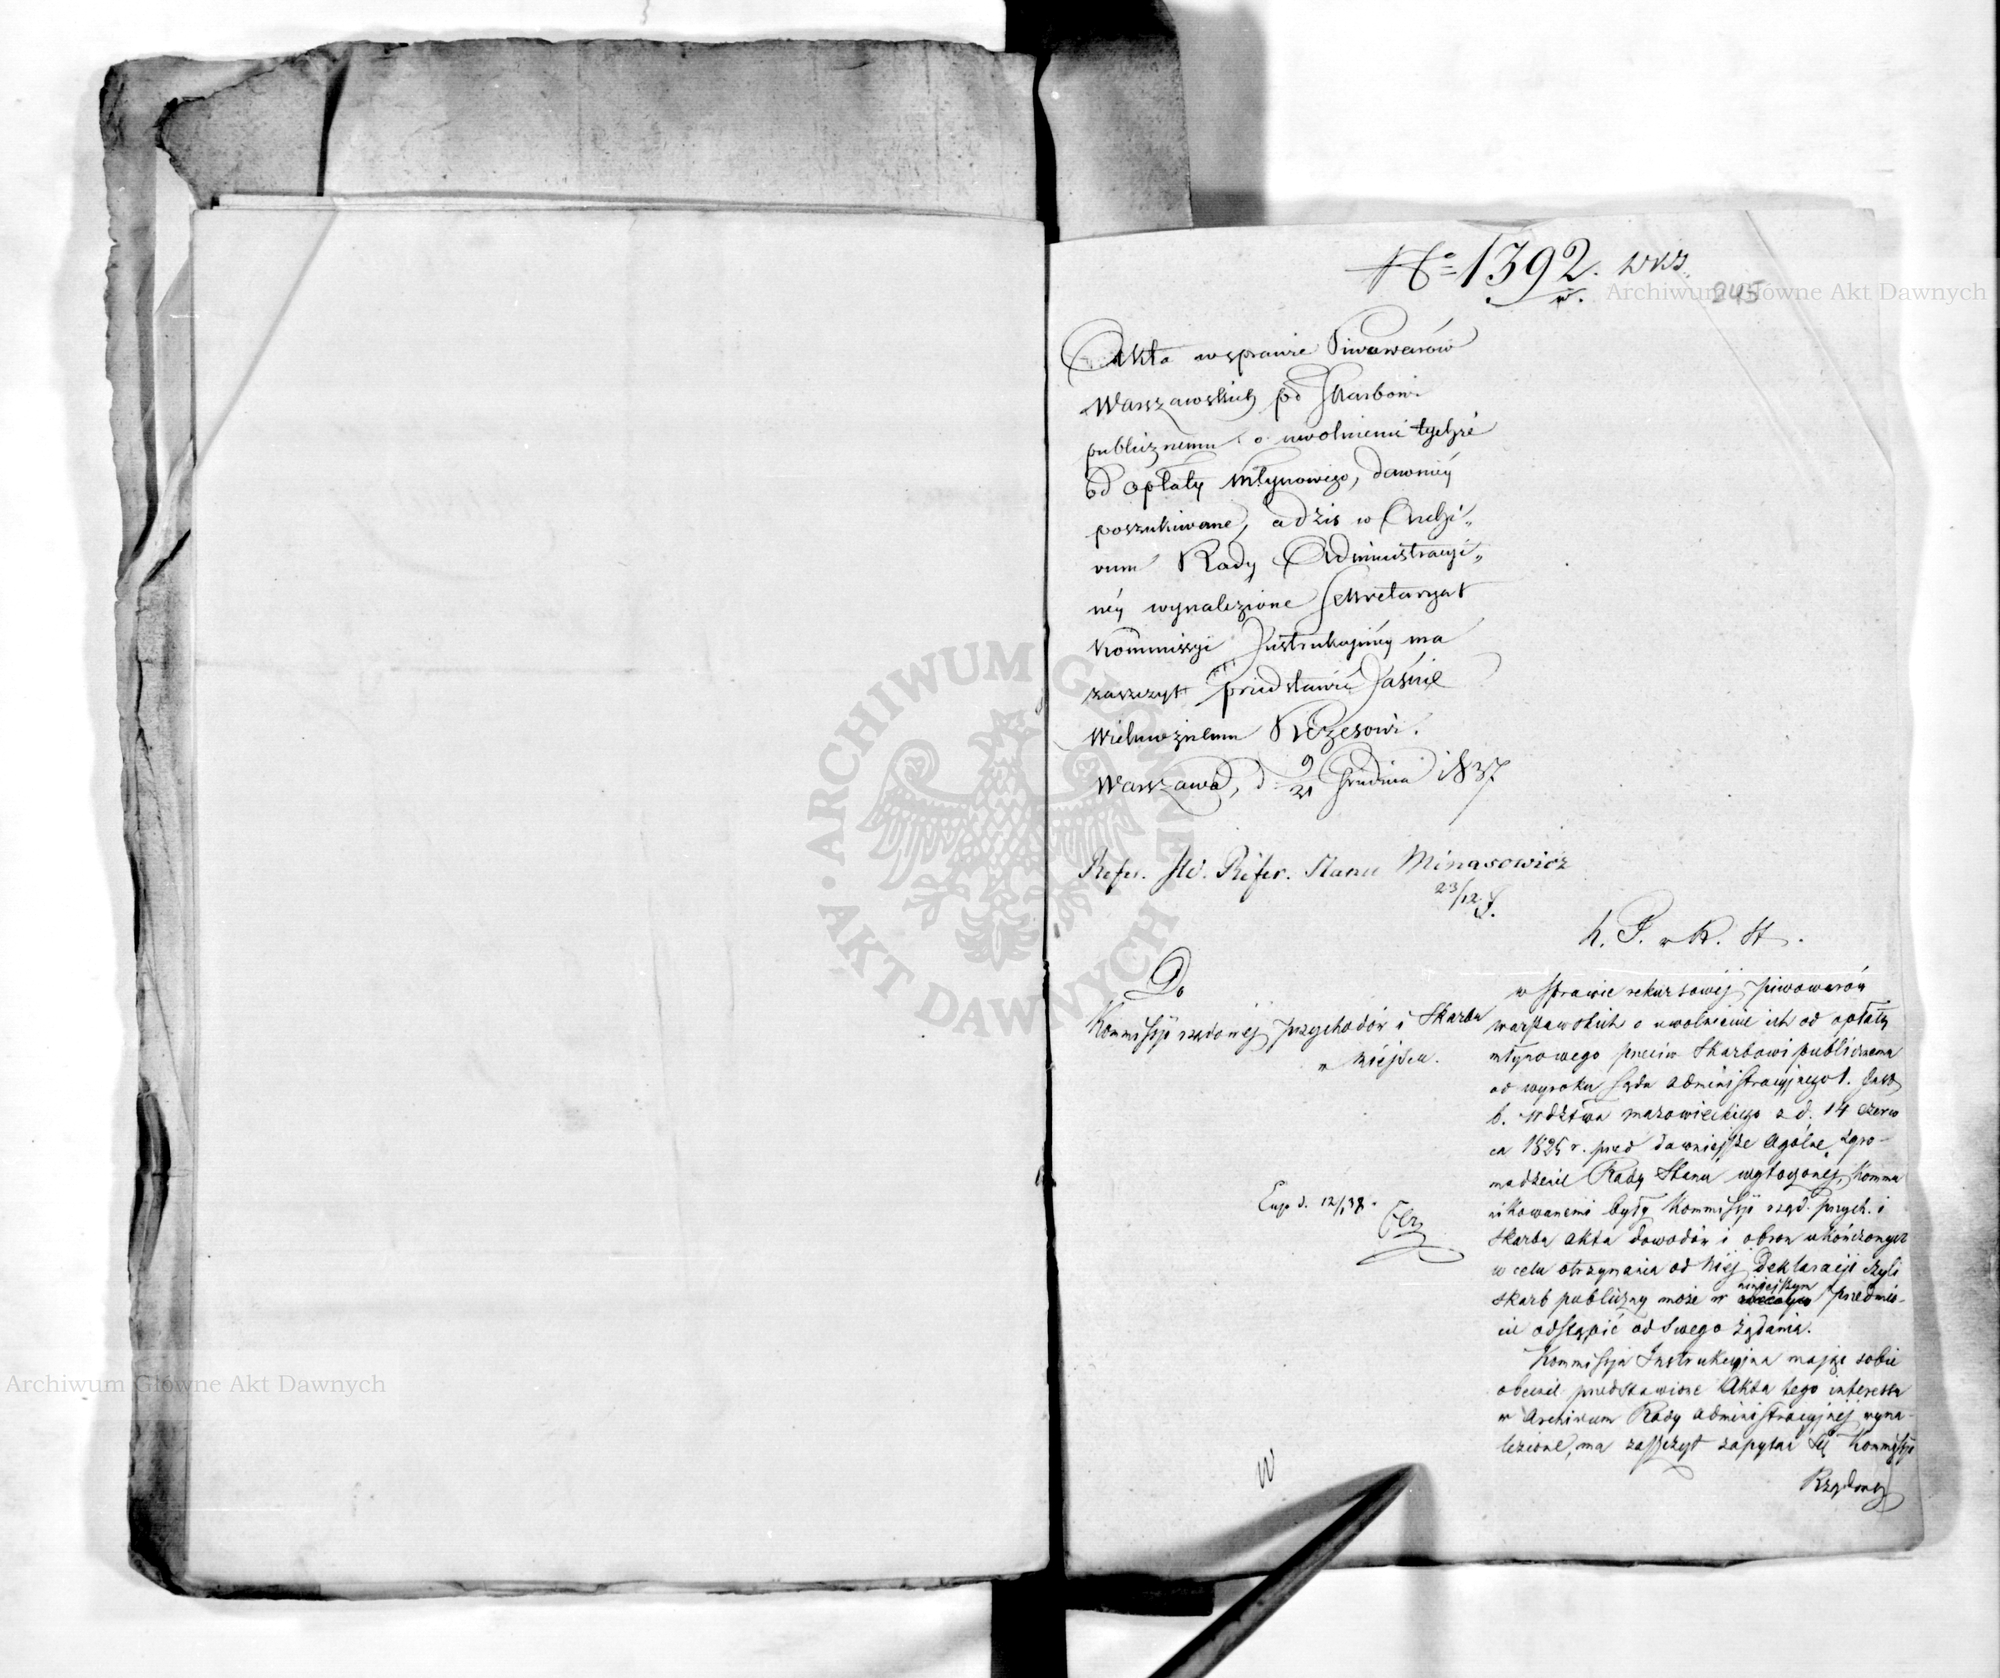 № 1392.
245
Akta w sprawie Piwowarów
Warszawskich pd Skarbowi
publicznemu o uwolnienie tychże
od opłaty młynowego, dawniéy
poszukiwane, a dziś w Archi„
vum Rady Administracyi„
néy wynalezione Sekretaryat
Kommissyi Instrukcyinéy ma
zaszczyt przedstawić Jaśnie
Wielmożnemu Prezesowi.
Warszawa, d. 9/21 Grudnia 1837
Refer. St. Refer. Stanu Minasowicz
23/12
Do
Kommissyi rządowéj przychodów i Skarbu
w miejscu.
Exp d. 12/1 38.
K. P. i R. St.
w sprawie rekursowéj piwowarów
warszawskich o uwolnienie ich od opłaty
młynowego przeciw Skarbowi publicznemu
od wyroku Sądu administracyjnego I. Inst.
b. Wdztwa mazowieckiego z d. 14 czerw
ca 1825 r. przed dawniejsze Ogólne Zgro-
madzenie Rady Stanu wytoczonéj, kommu
nikowanemi były Kommissyi rząd. przych. i
Skarbu akta dowodów i obron ukończonych
w celu otrzymania od niéj Deklaracyi czyli
niniejszym
Skarb publiczny może w przedmio-
cie odstąpić od swego żądania.
Kommissya Instrukcyjna mając sobie
obecnie przedstawione Akta tego interessu
w Archivum Rady administracyjnéj wyna-
lezione, ma zaszczyt zapytać się Kommissyi
Rządowéj
W
Archiwum Główne Akt Dawnych
Archiwum Główne Akt Dawnych
ARCHIWUM GŁÓWNE AKT DAWNYCH